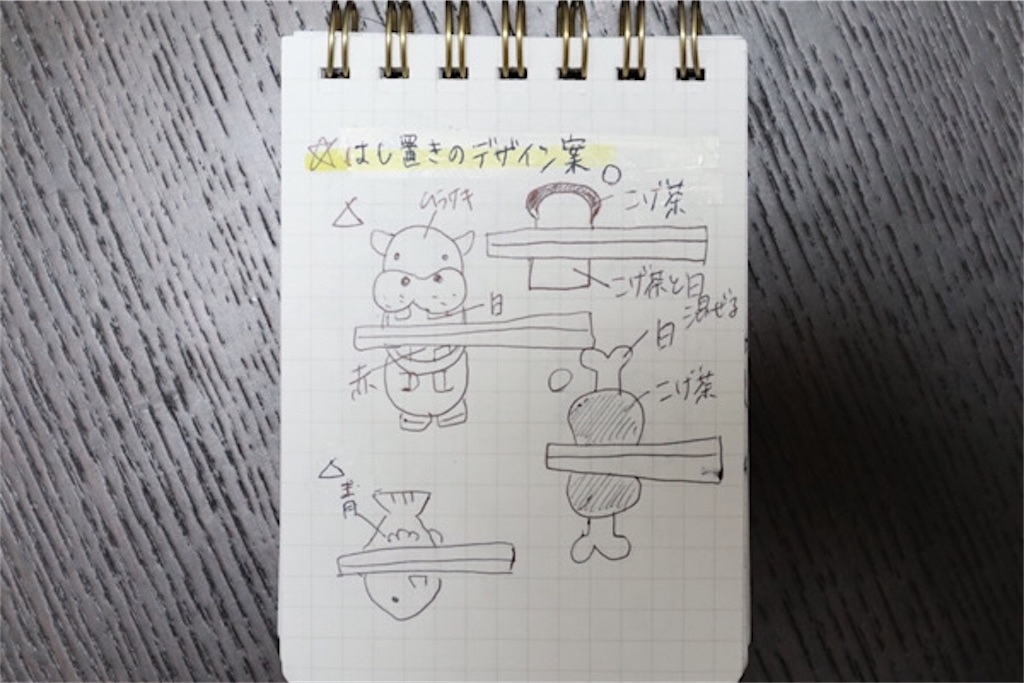 ☆はし置きのデザイン案
○
こげ茶
こげ茶と白
混ぜる
△
白
赤
○
白
こげ茶
△
青